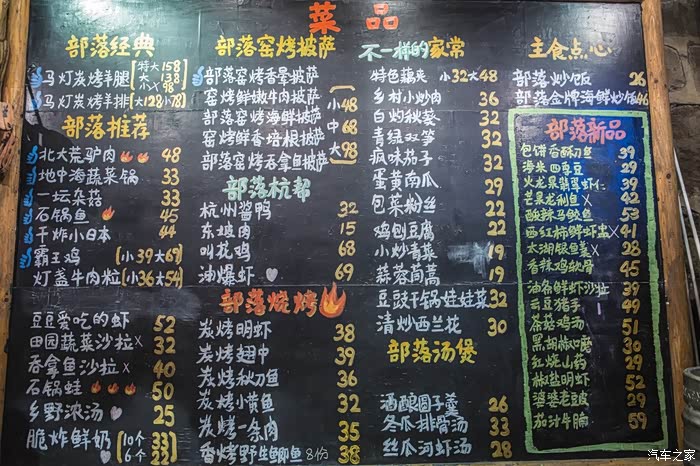 菜品
部落经典
马灯炭烤羊腿 特大158 大138 小98
马灯炭烤羊排(大128小78)
部落推荐
北大荒驴肉 48
地中海蔬菜锅 33
一坛杂菇 33
石锅鱼 45
干炸小日本 44
霸王鸡 (小39大69)
灯盏牛肉粒(小36大54)
豆豆爱吃的虾 52
田园蔬菜沙拉X 32
吞拿鱼沙拉X 40
石锅蛙 50
乡野浓汤 25
脆炸鲜奶 (10个33 6个32)
部落窑烤披萨
部落窑烤香掌披萨
窑烤鲜嫩牛肉披萨
部落窑烤海鲜披萨
窑烤鲜香培根披萨
部落窑烤吞拿鱼披萨
小48
中68
大98
部落杭帮
杭州酱鸭 32
东坡肉 15
叫花鸡 68
油爆虾 69
部落烧烤
炭烤明虾 38
炭烤翅中 39
炭烤秋刀鱼 36
炭烤小黄鱼 32
炭烤一条肉 35
香烤野生鲫鱼 8份 38
不一样的家常
特色藕夹 小32大48
乡村小炒肉 36
白灼秋葵 32
青绿双笋 32
疯味茄子 32
蛋黄南瓜 29
包菜粉丝 22
鸡刨豆腐 22
小炒青菜 19
蒜蓉茼蒿 19
豆豉干锅娃娃菜 32
清炒西兰花 30
部落汤煲
酒酿圆子羹 26
冬瓜排骨汤 33
丝瓜河虾汤 28
主食点心
部落炒饭 26
部落金牌海鲜炒饭 46
部落新品
包饼香酥刀鱼 39
海米四季豆 29
火龙果翡翠虾仁 39
芒果龙利鱼X 42
酸辣马鲛鱼 53
西红柿鲜虾盅X 41
太湖银鱼羹X 28
香辣鸡软骨 45
油条鲜虾沙拉 39
云豆猪手 49
茶菇鸡汤 51
黑胡椒 30
红烧山药 29
椒盐明虾 52
婆婆老豆 29
茄汁牛腩 59
汽车之家